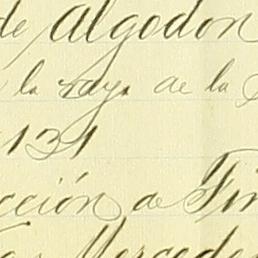 de algodon
la raya de la
131
cción de Fin
Mercede